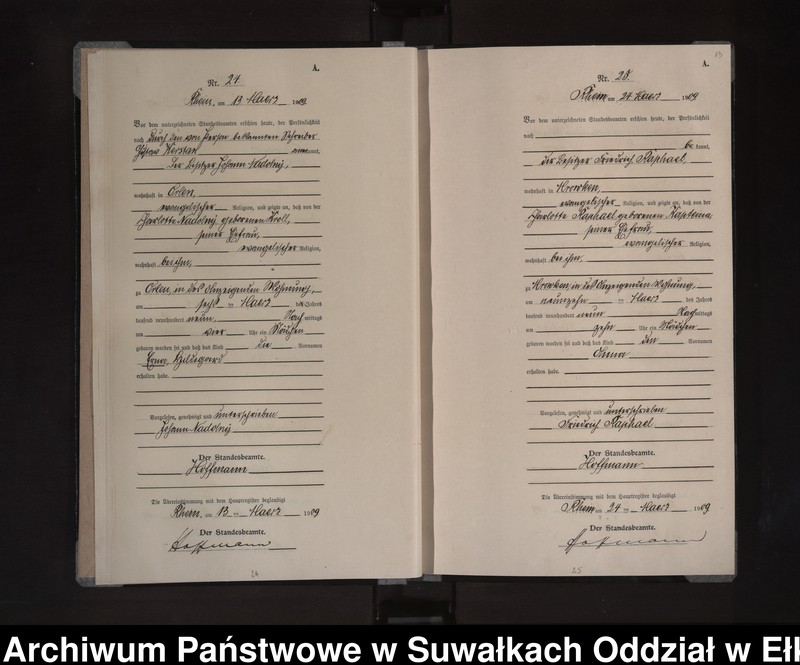 A.
Nr. 24
Rhein, am 13 Maerz 1909
Vor dem unterzeichneten Standesbeamten erschien heute, der Persönlichkeit
nach durch den von Person bekannten Schreiber
Gustav kannt,
der Besitzer Johann Nadolny,
wohnhaft in Orlen,
evangelischer Religion, und zeigte an, daß von der
Charlotte Nadolny geborenen Kroll,
seiner Ehefrau,
evangelischer Religion,
wohnhaft bei ihm,
zu Orlen, in des Anzeigenden Wohnung,
am sechs ten Maerz des Jahres
tausend neunhundert neun, Nachmittags
um vier Uhr ein Mädchen
geboren worden sei und daß das Kind die Vornamen
Erna, Hildegard
erhalten habe.
Vorgelesen, genehmigt und unterschrieben
Johann Nadolny
Der Standesbeamte.
Hoffmann
Die Übereinstimmung mit dem Hauptregister beglaubigt
Rhein, am 13 ten Maerz 1909
Der Standesbeamte.
Hoffmann
24
A.
Nr. 25.
Rhein am 24 Maerz 1909
Vor dem unterzeichneten Standesbeamten erschien heute, der Persönlichkeit
nach
be kannt,
der Besitzer Friedrich Raphael,
wohnhaft in
evangelischer Religion, und zeigte an, daß von der
Charlotte Raphael geborenen
seiner Ehefrau,
evangelischer Religion,
wohnhaft bei ihm,
zu in des Anzeigenden Wohnung,
am neunzehn ten Maerz des Jahres
tausend neunhundert neun Nachmittags
um zehn Uhr ein Mädchen
geboren worden sei und daß das Kind den Vornamen
erhalten habe.
Vorgelesen, genehmigt und unterschrieben
Friedrich Raphael
Der Standesbeamte.
Hoffmann
Die Übereinstimmung mit dem Hauptregister beglaubigt
Rhein am 24 ten Maerz 1909
Der Standesbeamte.
Hoffmann
25
Archiwum Państwowe w Suwałkach Oddział w Eł